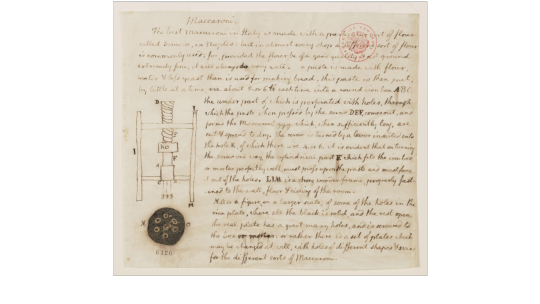 Maccaroni.
The best maccaroni in Italy is made with a particular sort of flour
called Semola, in Naples: but in almost every shop a different sort of flour
is commonly used; for, provided the flour be of a good quality & not ground
extremely fine, it will always do very well. a paste is made with flour,
water & less yeast than is used for making bread. this paste is then put,
by little at a time, viz. about 5. or 6. lb each time into a round iron box ABC.
the under part of which is perforated with holes, through
which the paste, when pressed by the screw DEF, comes out, and
forms the Maccaroni g.g.g. which when sufficiently long, are
cut & spread to dry. the screw is turned by a lever inserted into
the hole K of which there are 4. or 6. it is evident that on turning
the screw one way, the cylindrical part F which fits the iron box
or mortar perfectly well, must press upon the paste and must force
it out of the holes. LLM is a strong wooden frame, properly fast-
ened to the wall, floor & cieling of the room.
N.O. is a figure, on a larger scale, of some of the holes in the
iron plate, where all the black is solid, and the rest open.
the real plate has a great many holes, and is screwed to
the box or mortar: or rather there is a set of plates which
may be changed at will, with holes of different shapes & sizes
for the different sorts of Maccaroni.